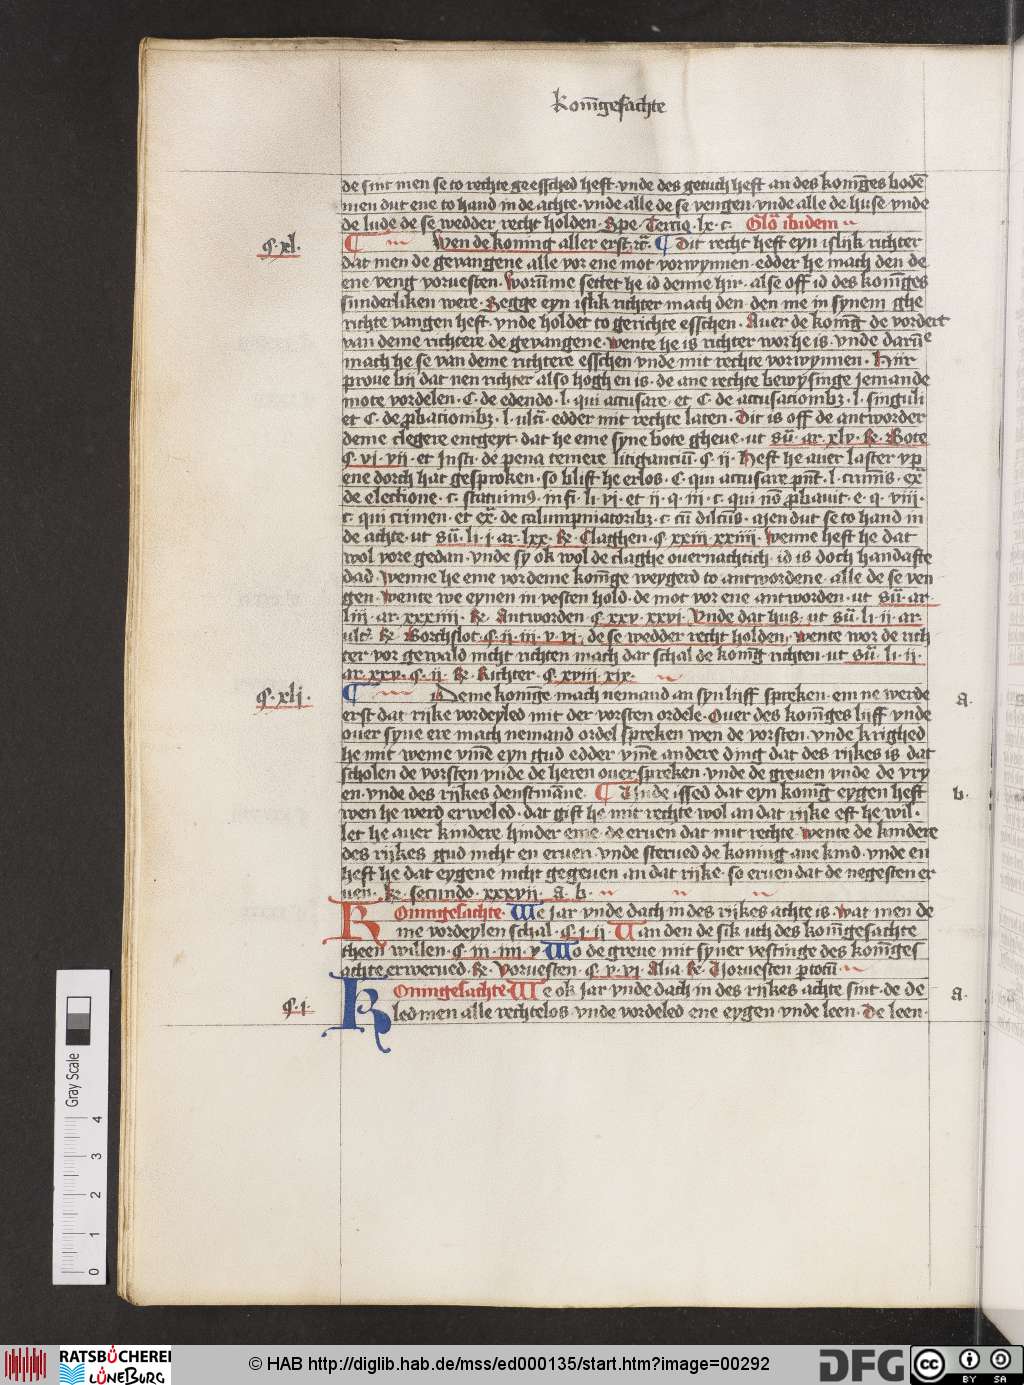 Konīgesachte
de sint men se to rechte geessched heft · vnde des getuch heft an des konīges bodē
men dut ene to hand in de achte · vnde alle de se vengen · vnde alle de huse vnde
de lude de se wedder recht holden · Spe · Tercio · lx · c · Glō ibidem
ꝯ · xl · Wen de koning aller erst · rc̄ · Dit recht heft eyn islijk richter
dat men de gevangene alle vor ene mot vorwynnen · edder he mach den de
ene veng vorvesten · Worūme settet he id denne hir · alse off id des konīges
sunderliken were · Segge eyn islik richter mach den · den me in synem ghe
richte vangen heft · vnde holdet to gerichte esschen · Auer de konīg de vordert
van deme richtere de gevangene · wente he is richter wor he is · vnde darūe
mach he se van deme richtere esschen vnde mit rechte vorwynnen · Hijr
prove bij dat nen richter also hogh en is · de ane rechte bewysinge jemande
mote vordelen · C · de edendo · l · qui accusare · et C · de accusacionibꝫ · l · singuli
et C · de ꝓbacionibꝫ · l · ulti · edder mit rechte laten · Dit is off de antworder
deme clegere entgeyt · dat he eme syne bote gheue · ut sū · ar · xlv · Re · Bote
ꝯ · vi · vij · et Insti · de pena temere litiganciū · ꝯ · ij · Heft he auer laster vp
ene dorch hat gesproken · so blift he erlos · C · qui accusare pn̄t · l · crimīs · ex̄
de electione · c · statuimꝰ · in fi · li · vi · et ij · q · iij · c · qui nō ꝓbauit · e · q · viij ·
c · qui crimen · et ex̄ · de calumpniatoribꝫ · c · cū dilcūs · Men dut se to hand in
de achte · ut sū · li · j · ar · lxx · Re · Claghen · ꝯ · xxiij · xxiiij · Wenne heft he dat
wol vore gedan · vnde sy ok wol de claghe ouernachtich · id is doch handafte
dad · Wenne he eme vor deme konīge weygerd to antwordene · alle de se ven
gen · Wente we eynen in vesten hold · de mot vor ene antworden · ut sū · ar
liij · ar · xxxiiij · Re · Antworden · ꝯ · xxv · xxvi · Vnde dat hus · ut sū · li · ij · ar ·
ult · Re · Borchslot · ꝯ · ij · iij · v · vi · de se wedder recht holden · wente wor de rich
ter vor gewald nicht richten mach dar schal de konīg richten · ut sū · li · ij ·
ar · xxv · ꝯ · ij · Re · Richter · ꝯ · xviij · xix ·
ꝯ · xlj · Deme konīge mach nemand an syn lijff spreken · em ne werde a ·
erst dat rijke vordeyled mit der vorsten ordele · Ouer des konīges lijff vnde
ouer syne ere mach nemand ordel spreken wen de vorsten · vnde krighed
he mit weme vm̄e eyn gud edder vm̄e andere ding dat des rijkes is dat
scholen de vorsten vnde de heren ouer spreken · vnde de greuen vnde de vry
en · vnde des rijkes denstmāne · Vnde issed dat eyn konīg eygen heft b ·
wen he werd erweled · dat gift he mit rechte wol an dat rijke eft he wil ·
let he auer kindere hinder eme · de eruen dat mit rechte · wente de kindere
des rijkes gud nicht en eruen · vnde sterued de koning ane kind · vnde en
heft he dat eygene nicht gegeuen an dat rijke · so eruen dat de negesten er
uen · Re · secundo · xxxvij · a · b ·
Koningesachte · We jar vnde dach in des rijkes achte is · wat men de
me vordeylen schal · ꝯ · j · ij · Van den de sik uth des konīgesachte
theen willen · ꝯ · iij · iiij · v · Wo de greue mit syner vestinge des konīges
achte erwerued · Re · Voruesten · ꝯ · v · vi · Alia Re · Voruesten ꝓtotū
ꝯ · j · Koningesachte · We ok jar vnde dach in des rijkes achte sint · de de a ·
led men alle rechtelos · vnde vordeled ene eygen vnde leen · De leen ·
Gray Scale
0 1 2 3 4
RATSBÜCHEREI LÜNEBURG
© HAB http://diglib.hab.de/mss/ed000135/start.htm?image=00292
DFG
cc BY SA